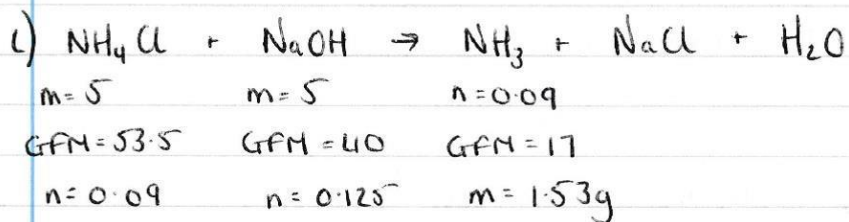 1) NH₄Cl + NaOH → NH₃ + NaCl + H₂O
m = 5 m = 5 n = 0.09
GFM = 53.5 GFM = 40 GFM = 17
n = 0.09 n = 0.125 m = 1.53g